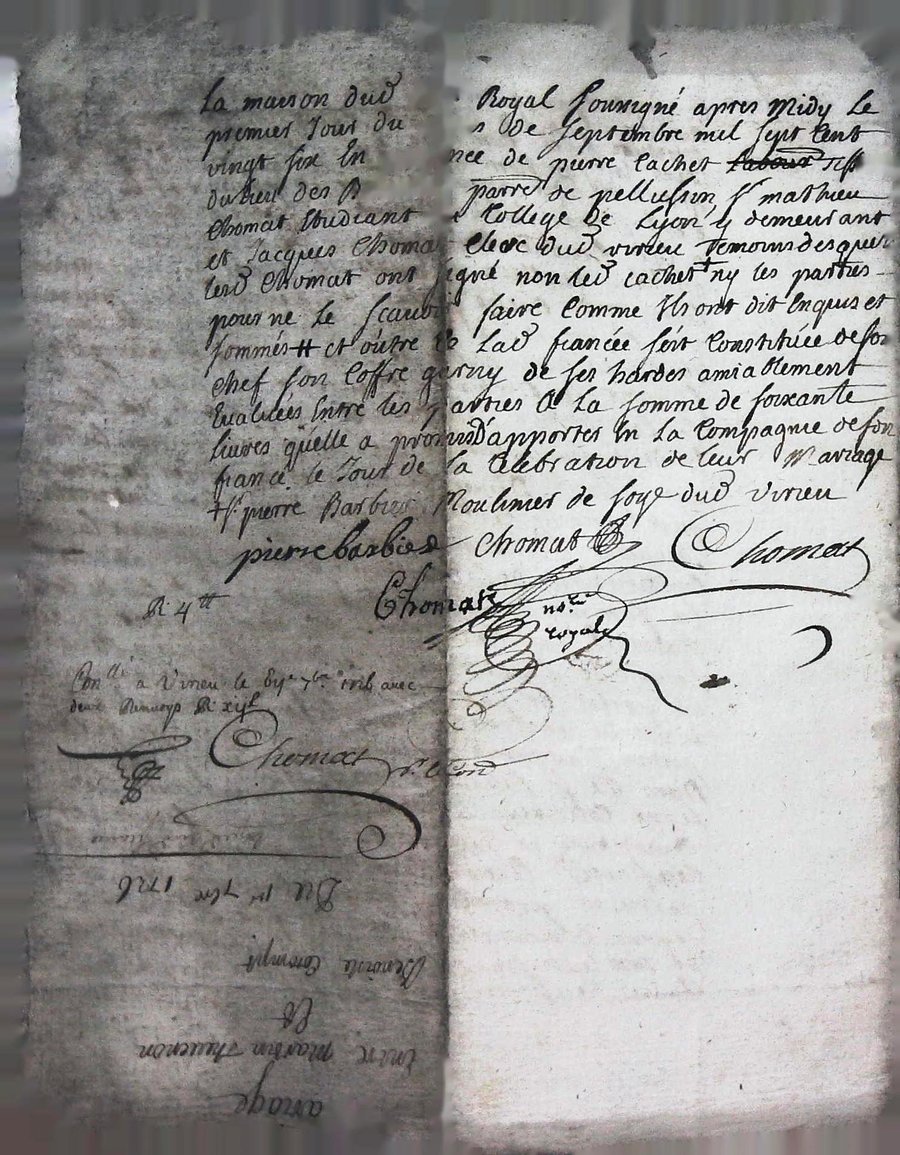 La maison dud Royal soussigné apres Midy Le
premier Jour du s de septembre mil sept Cent
vingt six En nce de pierre Cachet
du lieu des B parre de pellussin Sr mathieu
Chomat Etudiant College de Lyon y demeurant
et Jacques Chomat Clerc dud virieu temoins desquels
lesd Chomat ont signé non led cachet ny les parties
pour ne Le scavoir faire Comme Ils ont dit Enquis et
sommés # et outre Ce Lad fiancée s'est Constituée de son
chef son Coffre garny de ses hardes amiablement
Evaluées Entre les parties à La somme de soixante
Livres qu'elle a promis d'apporter En La Compagnie de son
fiancé le Jour de la Celebration de leur Mariage
+ Sr pierre Barbier Moulinier de soye dud Virieu
pierre barbier Chomat Chomat
R 4 tt Chomat nore
royal
Conllé a Virieu le 7bre 1726 avec
deux Renvoys R
Chomat
Du 1r 7bre 1726
Benoiste Corompt
Et
Entre Martin Thevenon
ariage